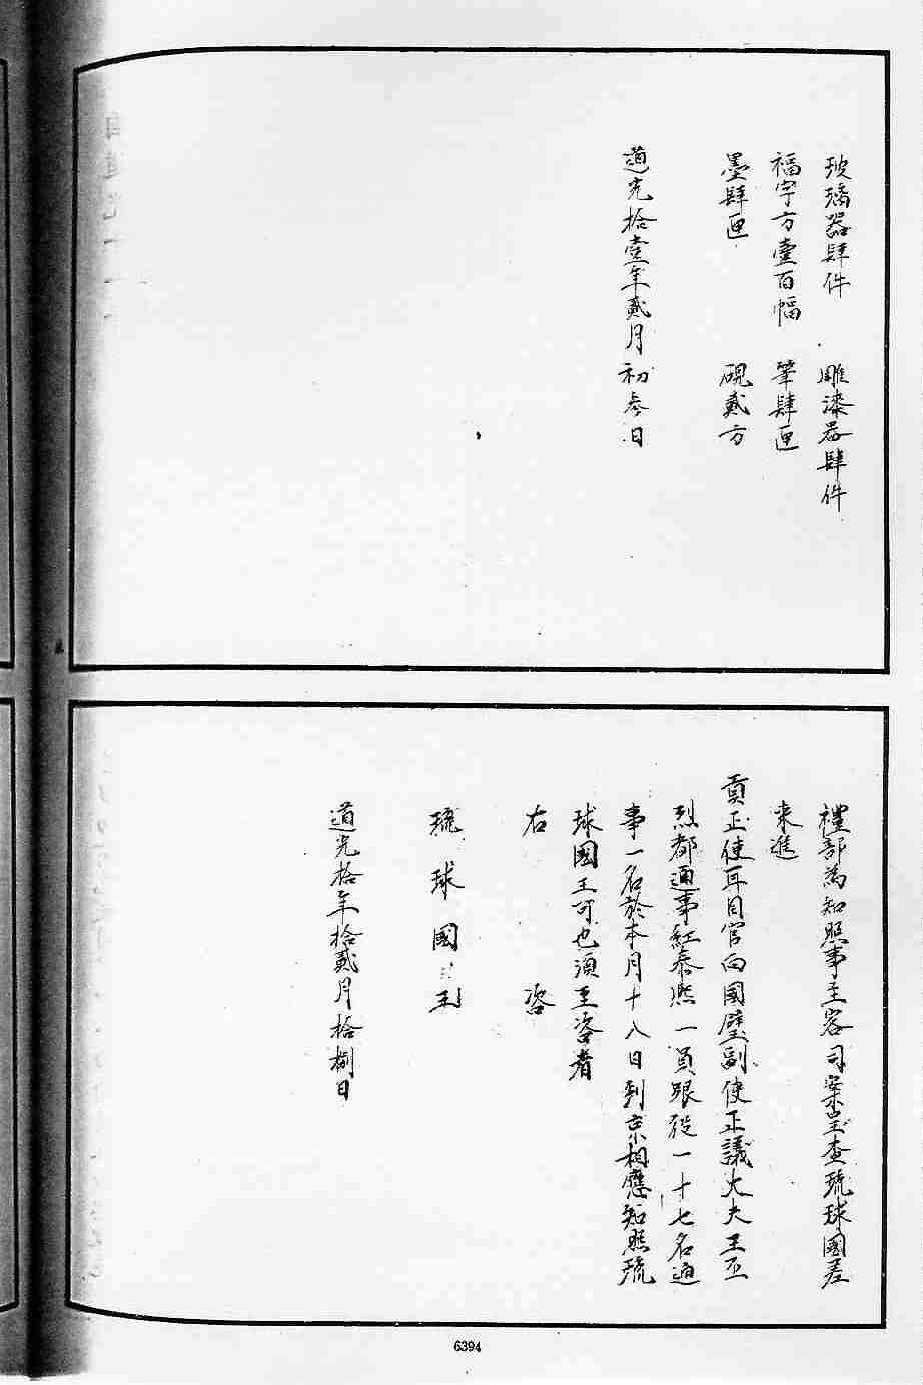 玻璃器肆件　雕漆器肆件
福字方壹百幅　筆肆匣
墨肆匣　硯貳方
道光拾壹年貳月初叄日
禮部為知照事主客司案呈查琉球國差
來進
貢正使耳目官向國璧副使正議大夫王丕
烈都通事紅泰熙一員跟從一十七名通
事一名於本月十八日到京相應知照琉
球國王可也須至咨者
右　咨
琉球國王
道光拾年拾貳月拾捌日
6394